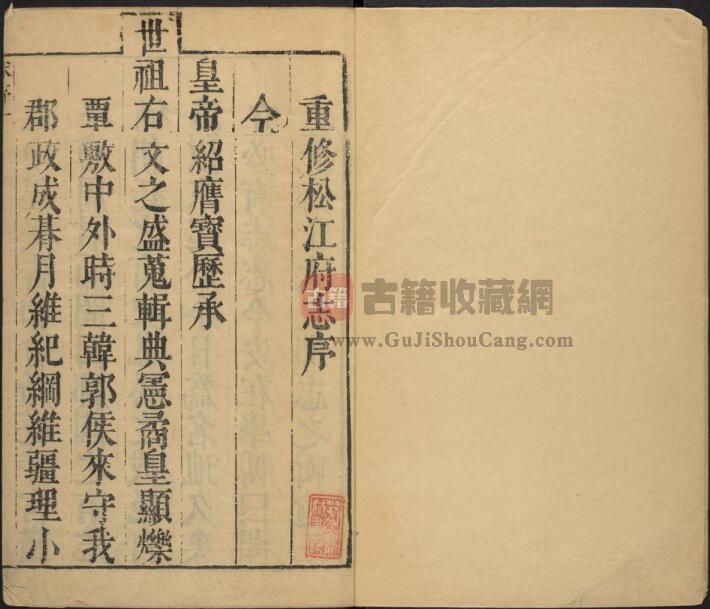 重修松江府志序
今
皇帝紹膺寶歷承
世祖右文之盛蒐輯典憲矞皇顯爍
覃敷中外時三韓郭侯來守我
郡政成朞月維紀綱維疆理小
古籍 古籍收藏網
www.GuJiShouCang.com